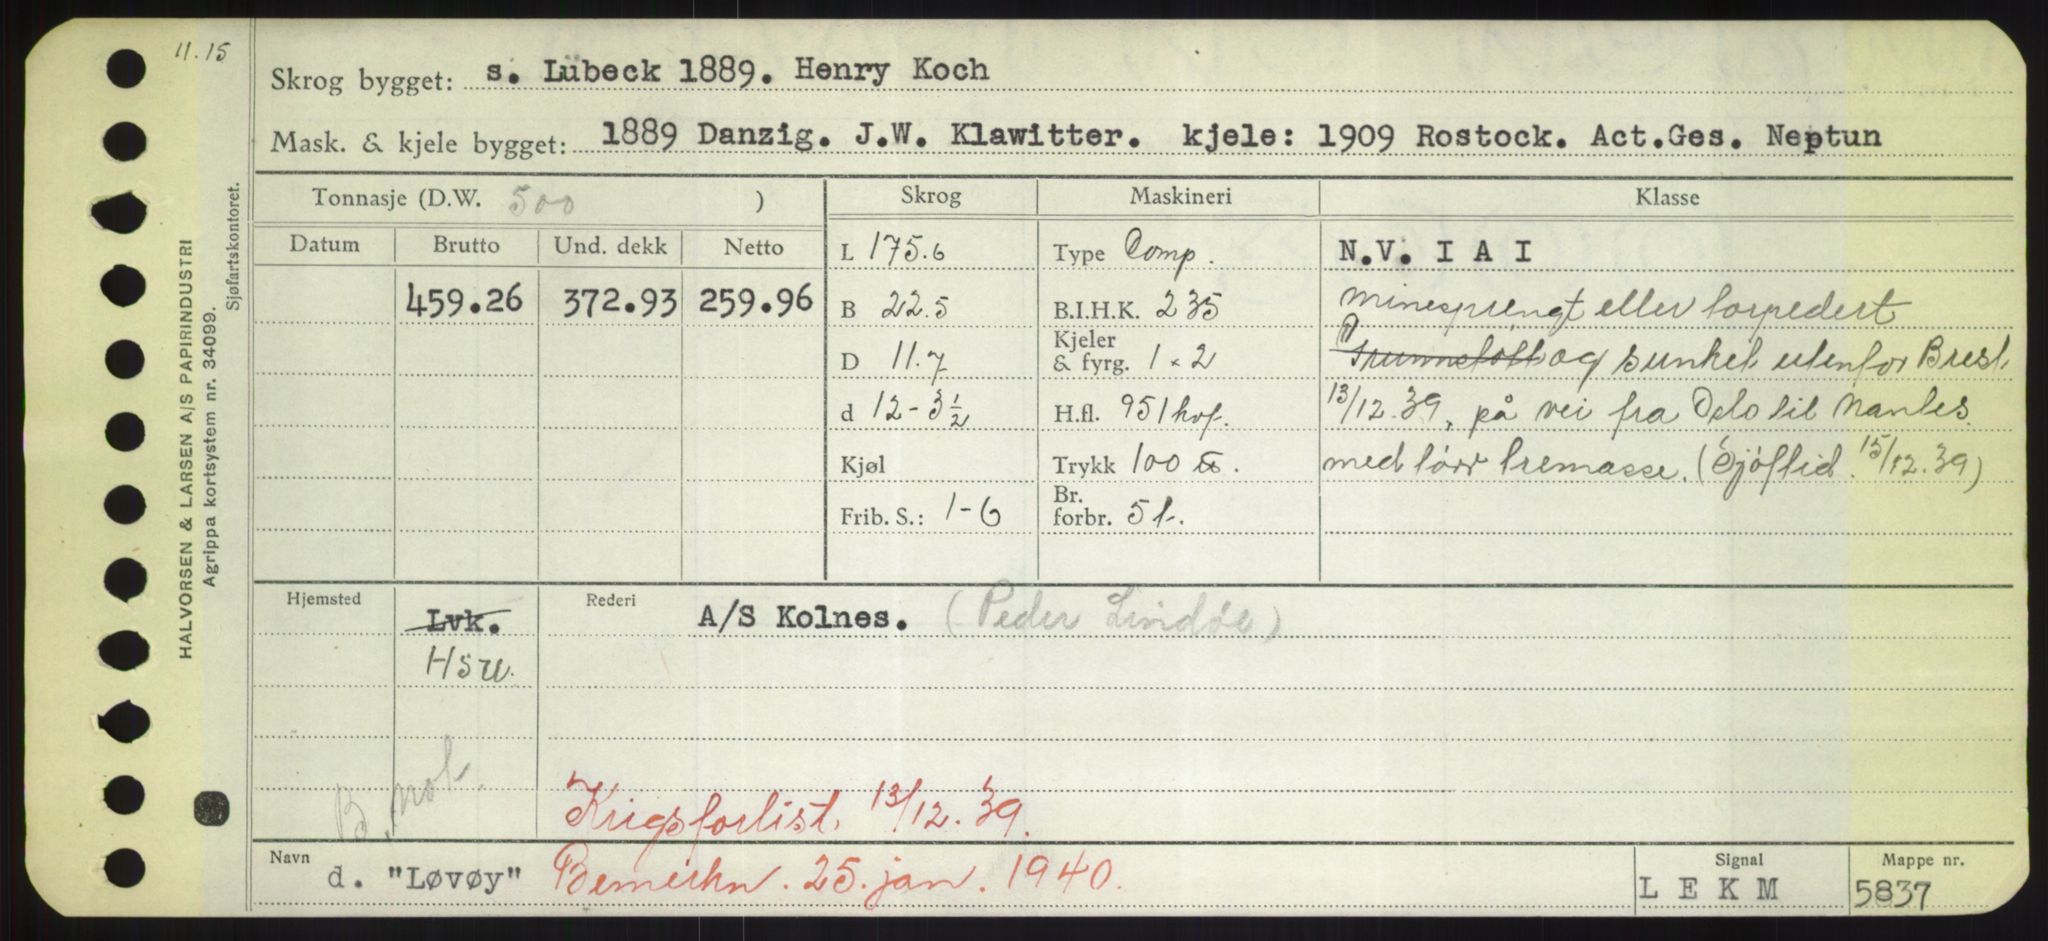 11.15
Skrog bygget: s. Lübeck 1889. Henry Koch
Mask. & kjele bygget: 1889 Danzig. J.W. Klawitter. kjele: 1909 Rostock. Act.Ges. Neptun
HALVORSEN & LARSEN A/S PAPIRINDUSTRI
Agrippa kortsystem nr. 34099.
Sjøfartskontoret.
Tonnasje (D.W. 500 ) Skrog Maskineri Klasse
Datum Brutto Und. dekk Netto L 175.6 Type Comp. N.V. I A I
459.26 372.93 259.96 B 22.5 B.I.H.K. 235 minesprengt eller torpedert
D 11.7 Kjeler & fyrg. 1 × 2 Grunnstøtt og sunket utenfor Brest
d 12-3½ H.fl. 951 kvf. 13/12.39, på vei fra Oslo til Nantes
Kjøl Trykk 100 ℔. med tørr tremasse. (Sjöftid. 15/12.39)
Frib. S.: 1-6 Br. forbr. 5 t.
Hjemsted Lvk. Rederi A/S Kolnes. (Peder Lindøe)
Hsu.
B. not.
Krigsforlist. 13/12.39.
Navn d. "Løvøy" Bemerkn. 25. jan. 1940. Signal L E K M Mappe nr. 5837